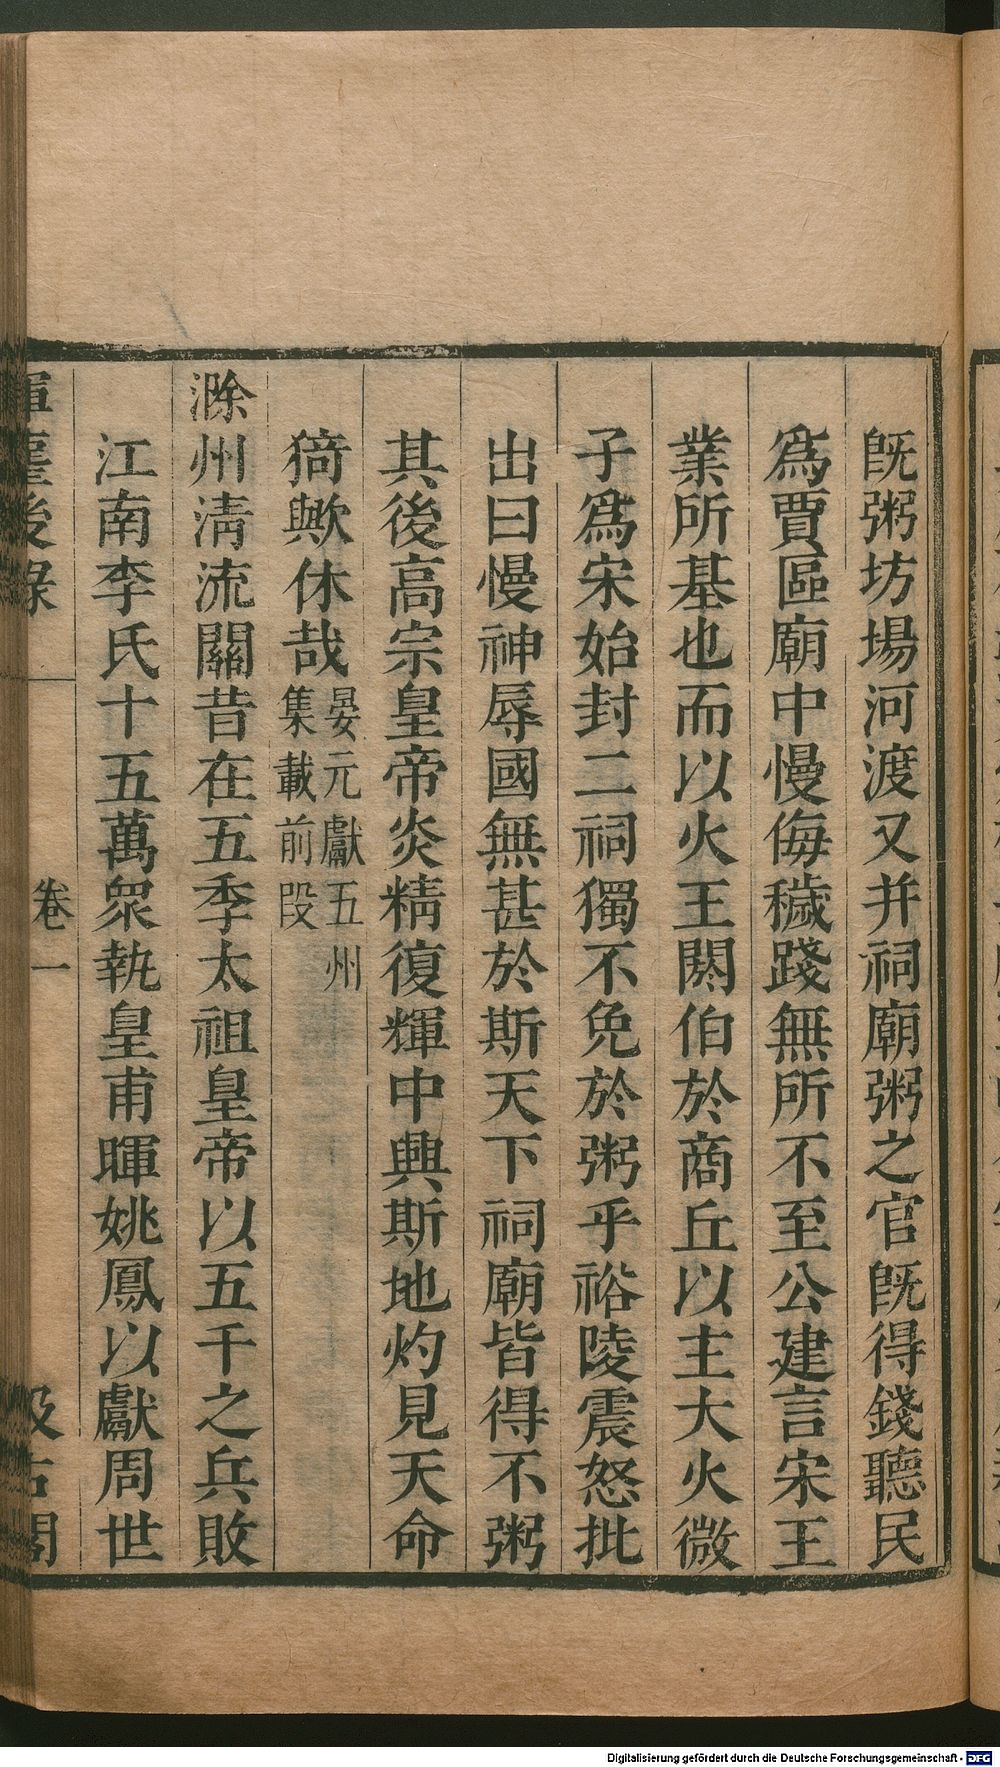 旣粥坊場河渡又并祠廟粥之官旣得錢聽民
爲賈區廟中慢侮穢踐無所不至公建言宋王
業所基也而以火王閼伯於商丘以主大火微
子爲宋始封二祠獨不免於粥乎裕陵震怒批
出曰慢神辱國無甚於斯天下祠廟皆得不粥
其後高宗皇帝炎精復輝中興斯地灼見天命
猗歟休哉晏元獻五州
集載前段
滁州清流關昔在五季太祖皇帝以五千之兵敗
江南李氏十五萬衆執皇甫暉姚鳳以獻周世
塵後錄
卷一
古閣
Digitalisierung gefördert durch die Deutsche Forschungsgemeinschaft - DFG